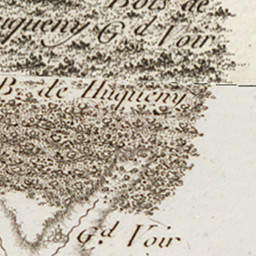 Bois de
uqueny G.d Voir
B. de Huqueny
G.d Voir